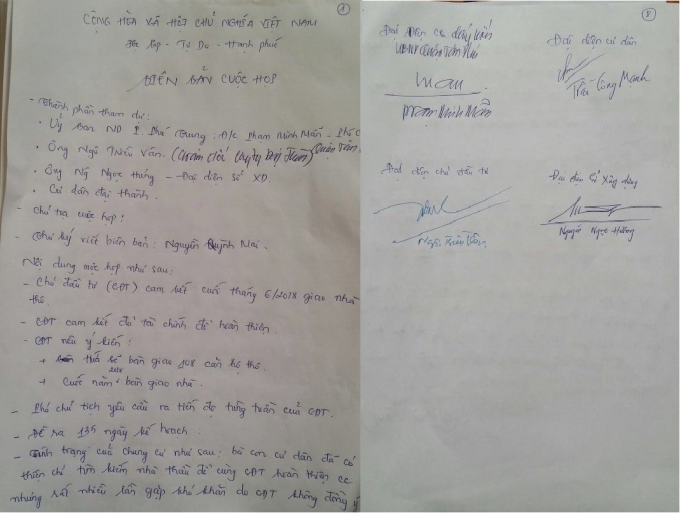 1
CỘNG HÒA XÃ HỘI CHỦ NGHĨA VIỆT NAM
Độc lập - Tự Do - Hạnh phúc
BIÊN BẢN CUỘC HỌP
- Thành phần tham dự:
• Uỷ ban ND P. Phú Trung: Đ/c Phạm Minh Mẫn - Phó C
• Ông Ngô Triều Vân. (Giám đốc Công ty
• Ông Ng Ngọc Hưng - Đại diện sở XD.
• Cư dân đại thành.
- Chủ trì cuộc họp:
- Thư ký viết biên bản: Nguyễn Quỳnh Mai.
Nội dung cuộc họp như sau:
- Chủ đầu tư (CĐT) cam kết cuối tháng 6/2018 giao nhà
thô.
- CĐT cam kết đủ tài chính để hoàn thiện.
- CĐT nêu ý kiến:
+ sẽ bàn giao 108 căn hộ thô.
+ Cuối năm bàn giao nhà.
- Phó chủ tịch yêu cầu ra tiến độ từng tuần của CĐT.
- Đề ra 135 ngày kế hoạch.
- Tình trạng của chung cư như sau: bà con cư dân đã có
thiện chí tìm kiếm nhà thầu để cùng CĐT hoàn thiện cc
nhưng rất nhiều lần gặp khó khăn do CĐT không đồng ý
8
Đại diện
UBND Quận Tân Phú
Phạm Minh Mẫn
Đại diện cư dân
Trần Công Mạnh
Đại diện chủ đầu tư
Ngô Triều Vân
Đại diện Sở Xây dựng
Nguyễn Ngọc Hưng